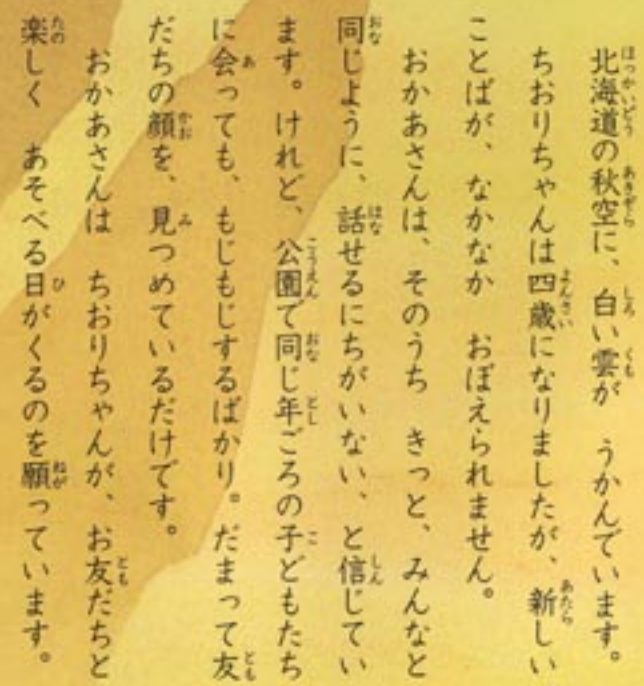 北海道の秋空に、白い雲が　うかんでいます。
ちおりちゃんは四歳になりましたが、新しい
ことばが、なかなか　おぼえられません。
おかあさんは、そのうち　きっと、みんなと
同じように、話せるにちがいない、と信じてい
ます。けれど、公園で同じ年ごろの子どもたち
に会っても、もじもじするばかり。だまって友
だちの顔を、見つめているだけです。
おかあさんは　ちおりちゃんが、お友だちと
楽しく　あそべる日がくるのを願っています。